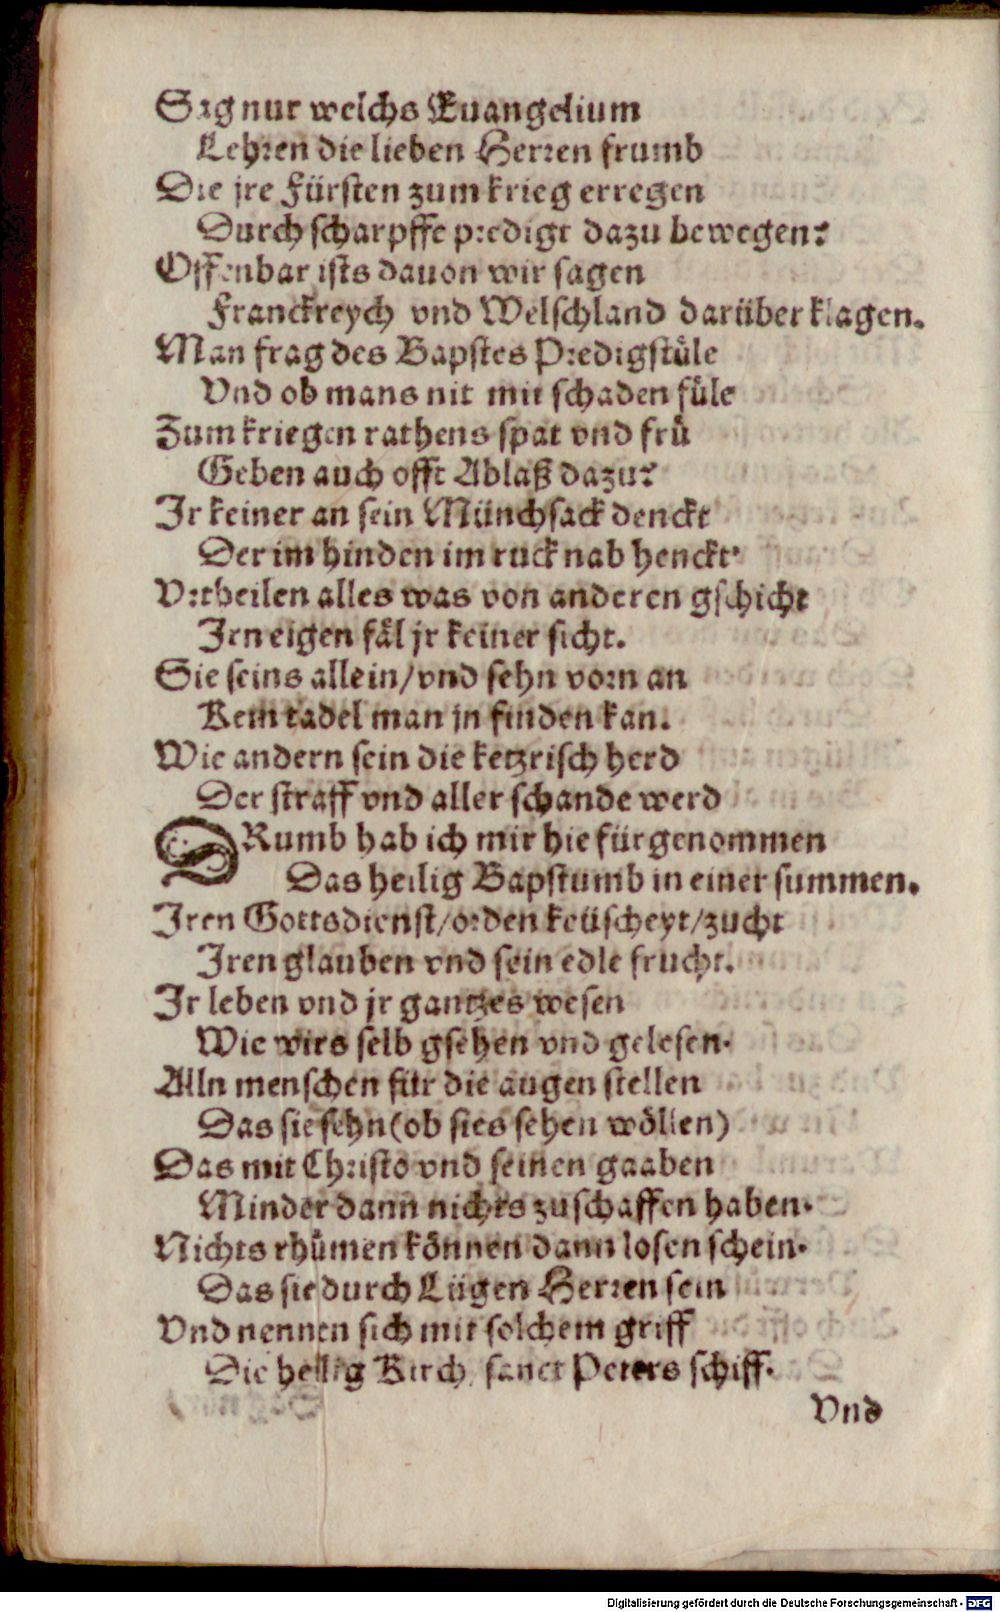 Sag nur welchs Euangelium
Lehren die lieben Herren frumb
Die jre Fürsten zum krieg erregen
Durch scharpffe predigt dazu bewegen?
Offenbar ists dauon wir sagen
Franckreych vnd Welschland darüber klagen.
Man frag des Bapstes Predigstüle
Vnd ob mans nit mit schaden füle
Zum kriegen rathens spat vnd frü
Geben auch offt Ablaß dazu?
Ir keiner an sein Münchsack denckt
Der im hinden im ruck nab henckt.
Vrtheilen alles was von anderen gschicht
Irn eigen fäl jr keiner sicht.
Sie seins allein/vnd sehn vorn an
Kein tadel man jn finden kan.
Wie andern sein die ketzrisch herd
Der straff vnd aller schande werd
DRumb hab ich mir hie fürgenommen
Das heilig Bapstumb in einer summen.
Iren Gottsdienst/orden keüscheyt/zucht
Iren glauben vnd sein edle frucht.
Ir leben vnd jr gantzes wesen
Wie wirs selb gsehen vnd gelesen.
Alln menschen für die augen stellen
Das sie sehn (ob sies sehen wöllen)
Das mit Christo vnd seinen gaaben
Minder dann nichts zuschaffen haben.
Nichts rhümen können dann losen schein.
Das sie durch Lügen Herren sein
Vnd nennen sich mit solchem griff
Die heilig Kirch, sanct Peters schiff.
Vnd
Digitalisierung gefördert durch die Deutsche Forschungsgemeinschaft - DFG